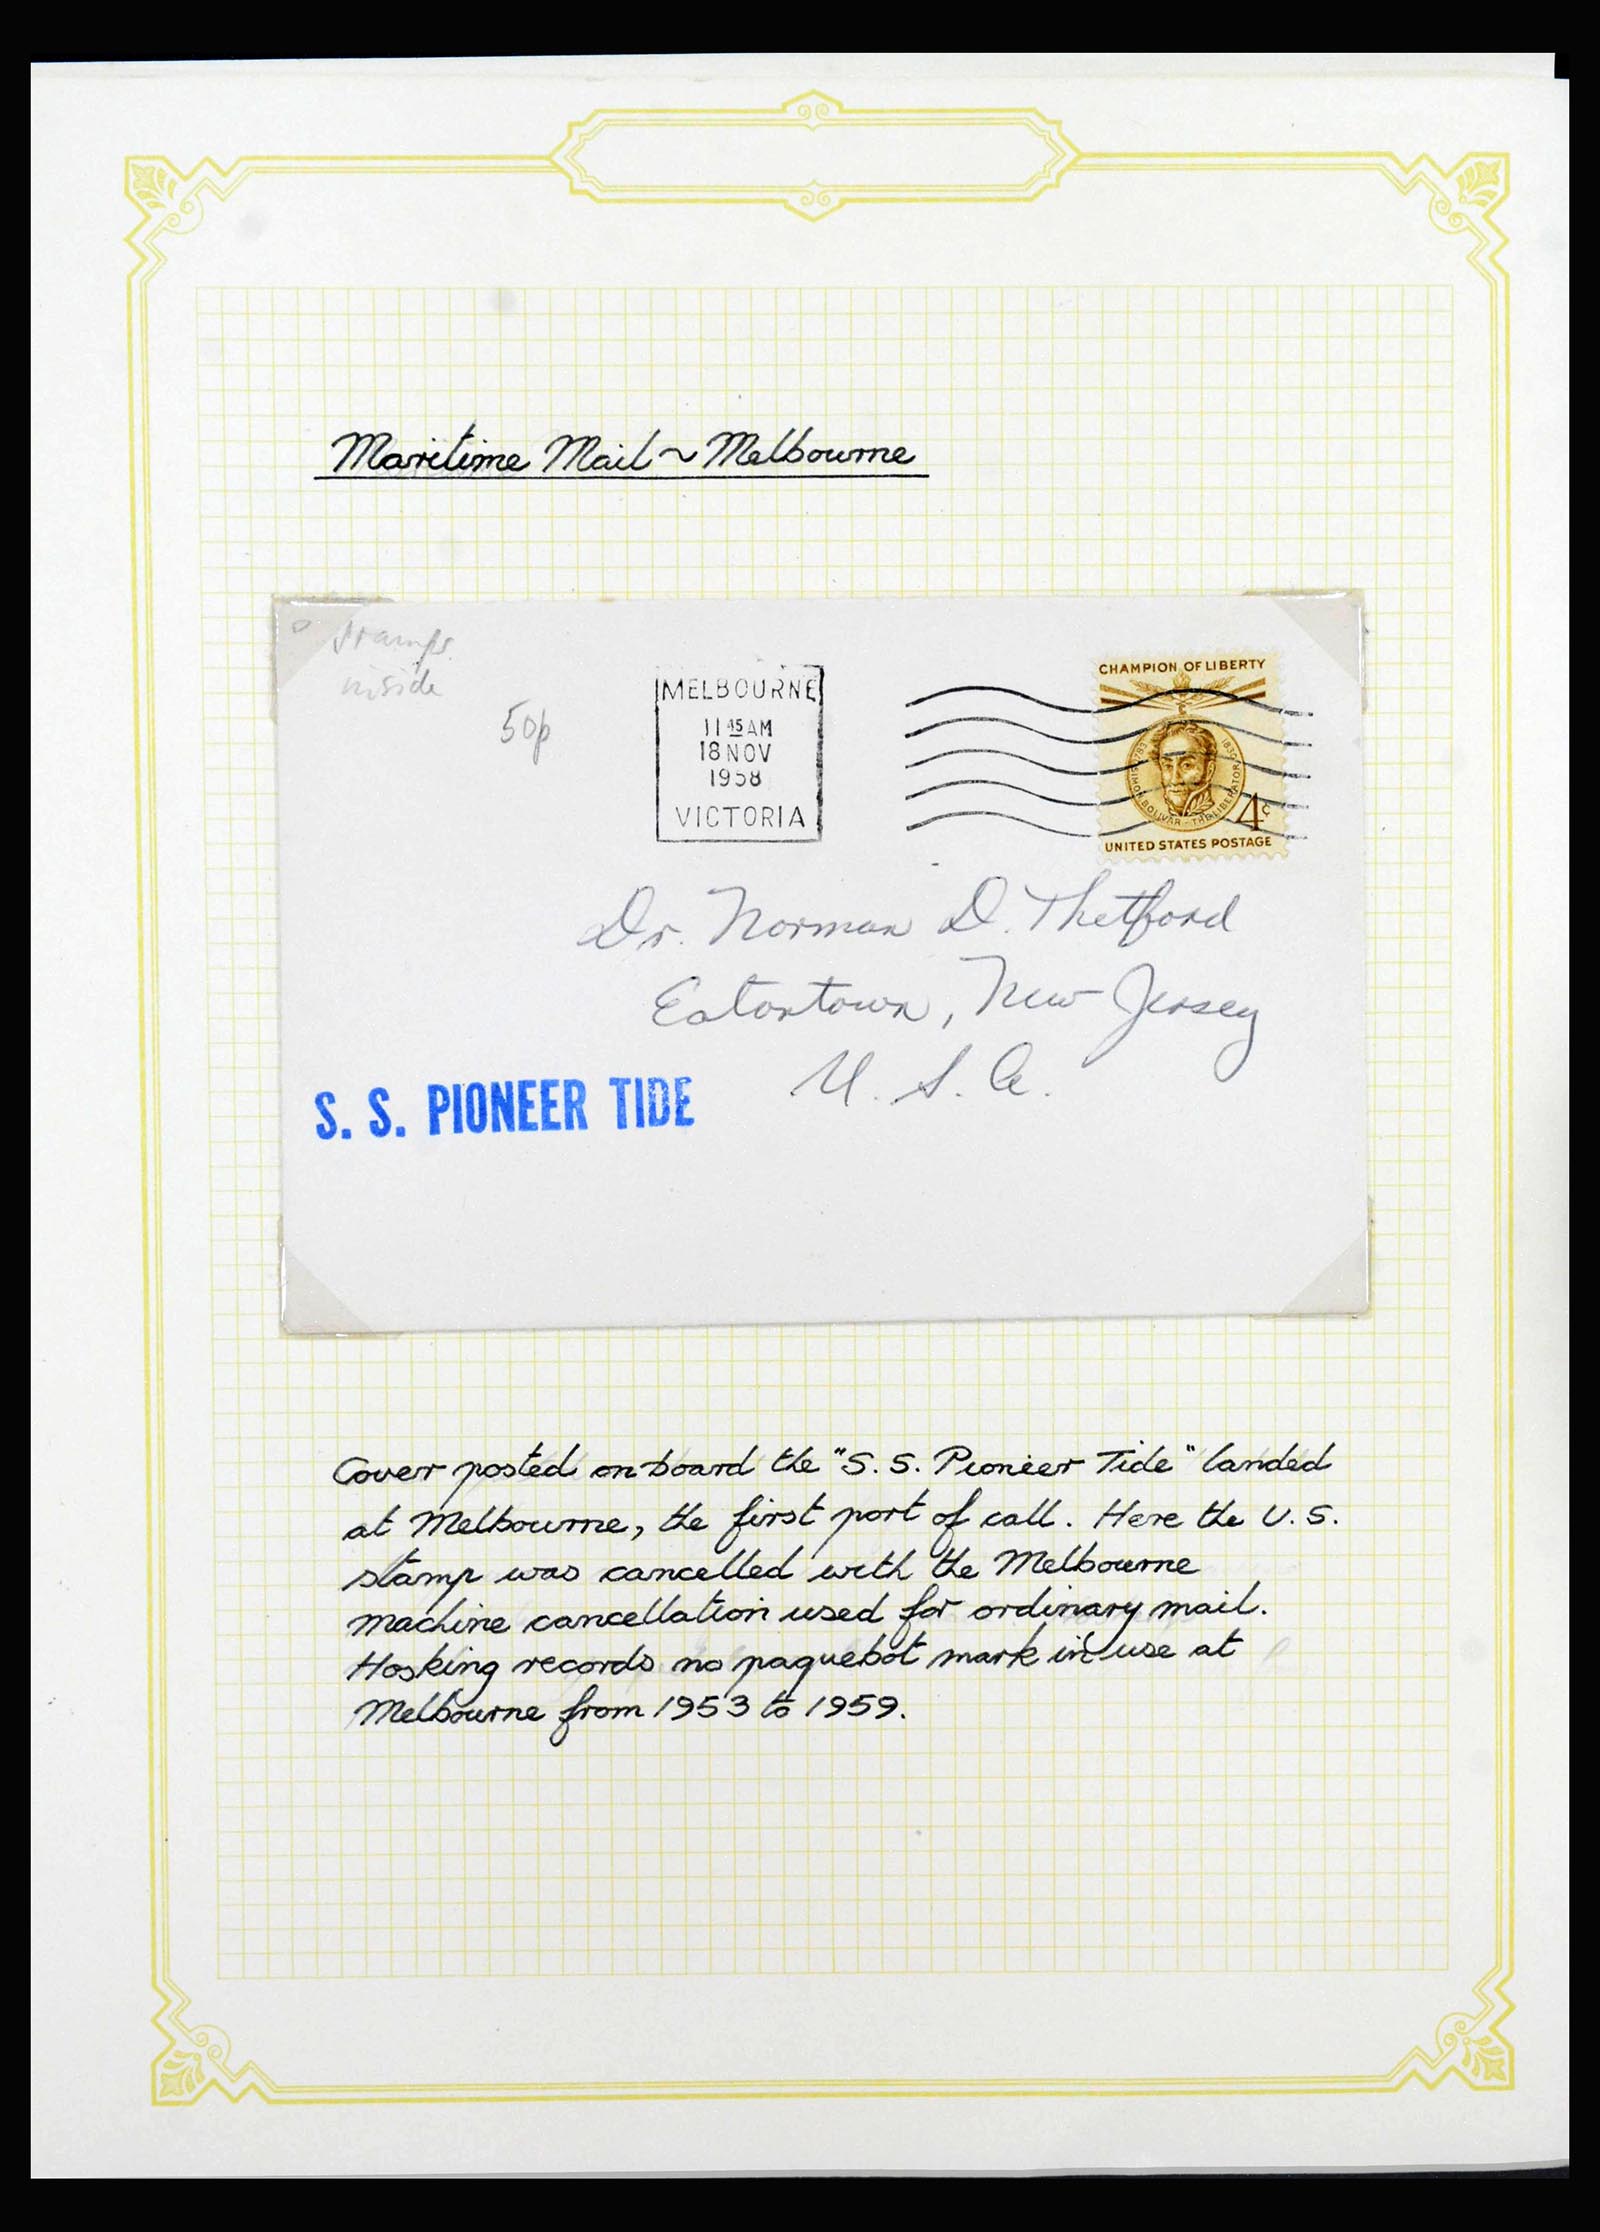 Maritime Mail ~ Melbourne
stamps
inside
50p
MELBOURNE
11 45 AM
18 NOV
1958
VICTORIA
CHAMPION OF LIBERTY
1783 SIMON BOLIVAR - THE LIBERATOR 1830
4c
UNITED STATES POSTAGE
Dr. Norman D. Thetford
Eatontown, New Jersey
U. S. A.
S. S. PIONEER TIDE
Cover posted on board the "S. S. Pioneer Tide" landed
at Melbourne, the first port of call. Here the U. S.
stamp was cancelled with the Melbourne
machine cancellation used for ordinary mail.
Hosking records no paquebot mark in use at
Melbourne from 1953 to 1959.